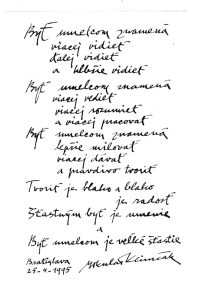 Byť umelcom znamená
viacej vidieť
ďalej vidieť
a hlbšie vidieť
Byť umelcom znamená
viacej vedieť
viacej rozumieť
a viacej pracovať
Byť umelcom znamená
lepšie milovať
viacej dávať
a pravdivo tvoriť
Tvoriť je blaho a blaho
je radosť
Šťastným byť je umenie
a
Byť umelcom je veľké šťastie
Bratislava
25-9-1995